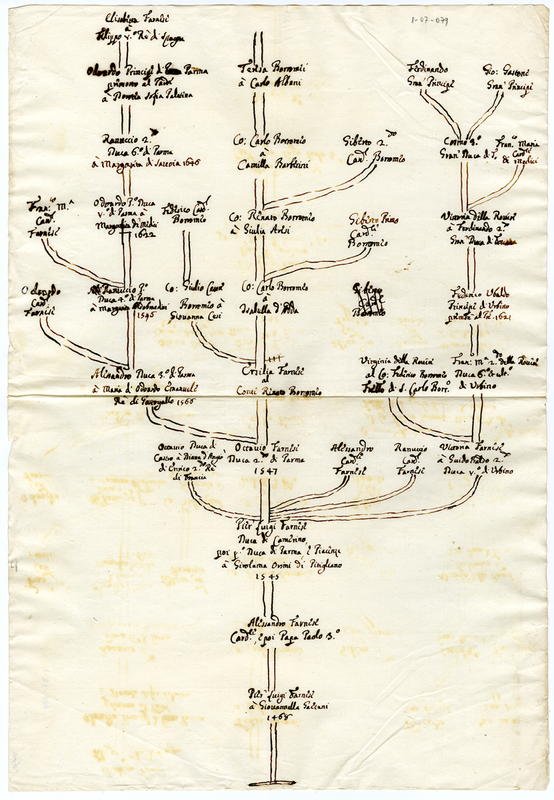 1-07-079
Elisabetta Farnese
à
Filippo V.º Rè di Spagna
Odoardo Principe di Parma
à Dorotea Sofia Palatina
Teresa Borromei
à Carlo Albani
Ferdinando
Gran Principe
Gio: Gastone
Gran Principe
Ranuccio 2.º
Duca 6.º di Parma
à Margarita di Savoia 1646
Co: Carlo Borromeo
à
Camilla Barberini
Giberto 2.do
Card. Borromeo
Cosmo 3.º
Gran Duca di T.
Fran. Maria
Card.
de Medici
Fran. M.ª
Card.
Farnese
Odoardo P.º Duca
V.º di Parma à
Margarita de Medici
1622
Federico Card.
Borromeo
Co: Renato Borromeo
à Giulia Aresi
Giberto Primo
Card.le
Borromeo
Vittoria della Rovere
à Ferdinando 2.º
Gran Duca di
Odoardo
Card.
Farnese
Ranuccio P.º
Duca 4.º di Parma
à Margarita Aldobrandini
Co: Giulio Cesare
Borromeo à
Giovanna Cesi
Co: Carlo Borromeo
à
Isabella d'Adda
Borromeo
Federico Ubaldo
Principe di Urbino
1621
Alessandro Duca 3.º di Parma
à Maria di Odoardo Emanuele
Rè di Portogallo 1566
Ersilia Farnese
al
Conte Renato Borromeo
Virginia della Rovere
al Co: Federico Borromeo
Fratello di S. Carlo Borr.
Fran. M.ª 2.do della Rovere
Duca 6.º
di Urbino
Ottavio Duca di
Castro à Diana
di Enrico 2.º Rè
di Francia
Ottavio Farnese
Duca 2.do di Parma
1547
Alessandro
Card.
Farnese
Ranuccio
Card.
Farnese
Vittoria Farnese
à Guido Baldo 2.º
Duca V.º di Urbino
Pier Luigi Farnese
Duca di Camerino,
poi p.º Duca di Parma, e Piacenza
à Girolama Orsini di Pitigliano
1545
Alessandro Farnese
Card.le, e poi Papa Paolo 3.º
Pier Luigi Farnese
à Giovannella Gaetani
1466